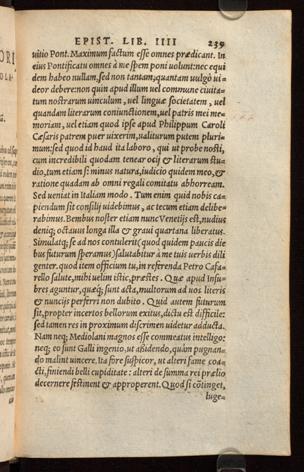 EPIST. LIB. IIII 239
uitio Pont. Maximum factum esse omnes prædicant. In
eius Pontificatu omnes à me spem poni uolunt: nec equi
dem habeo nullam, sed non tantam, quantam uulgò ui=
deor debere: non quin apud illum uel commune ciuita=
tum nostrarum uinculum, uel linguæ societatem, uel
quandam literarum coniunctionem, uel patris mei me=
moriam, uel etiam quod ipse apud Philippum Caroli
Cæsaris patrem puer uixerim, ualiturum putem pluri=
mum: sed quod id haud ita laboro, qui ut probe nosti,
cum incredibili quodam tenear ocij & literarum stu=
dio, tum etiam s: minus natura, iudicio quidem meo, &
ratione quadam ab omni regali comitatu abhorream.
Sed ueniat in Italiam modo. Tum enim quid nobis ca=
piendum sit consilij uidebimus, ac tecum etiam delibe=
rabimus. Bembus noster etiam nunc Venetijs est, nudius
deniq; octauus longa illa & graui quartana liberatus.
Simulatq; se ad nos contulerit (quod quidem paucis die
bus futurum speramus) salutabitur à me tuis uerbis dili
genter. quod item officium tu, in referenda Petro Cafa=
rello salute, mihi uelim istic, præstes. Quæ apud Insu=
bres aguntur, quæq; sunt acta, multorum ad uos literis
& nuncijs perferri non dubito. Quid autem futurum
sit, propter incertos bellorum exitus, dictu est difficile:
sed tamen res in proximum discrimen uidetur adducta.
Nam neq; Mediolani magnos esse commeatus intelligo:
neq; eo sunt Galli ingenio, ut absidendo, quàm pugnan=
do malint uincere. Ita fore suspicor, ut alteri fame coa=
cti, finiendi belli cupiditate: alteri de summa rei prælio
decernere festinent & approperent. Quod si cōtinget,
luge=